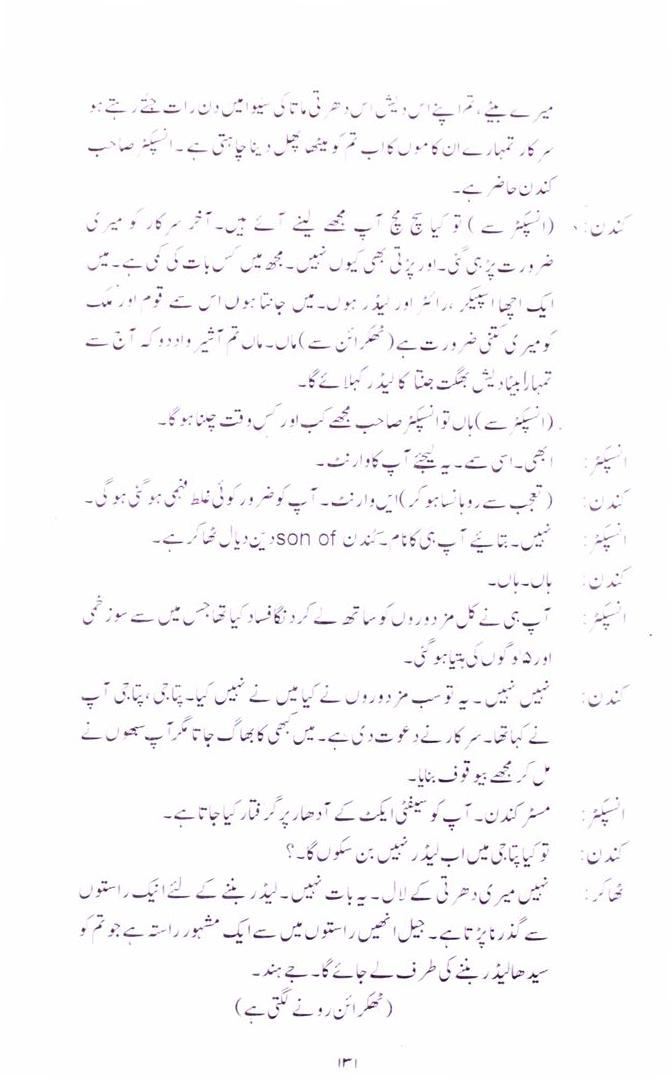 میرے بیٹے، تم اپنے اس دیش اس دھرتی ماتا کی سیوا میں دن رات جٹے رہتے ہو
سرکار تمہارے ان کاموں کا اب تم کو میٹھا پھل دینا چاہتی ہے۔ انسپکٹر صاحب
کندن حاضر ہے۔
کندن: (انسپکٹر سے) تو کیا سچ مچ آپ مجھے لینے آئے ہیں۔ آخر سرکار کو میری
ضرورت پڑ ہی گئی۔ اور پڑتی بھی کیوں نہیں۔ مجھ میں کس بات کی کمی ہے۔ میں
ایک اچھا اسپیکر، رائٹر اور لیڈر ہوں۔ میں جانتا ہوں اس سمے قوم اور ملک
کو میری کتنی ضرورت ہے (ٹھکرائن سے) ماں۔ ماں تم آشیرواد دو کہ آج سے
تمہارا بیٹا دیش بھگت جنتا کا لیڈر کہلائے گا۔
(انسپکٹر سے) ہاں تو انسپکٹر صاحب مجھے کب اور کس وقت چلنا ہوگا۔
انسپکٹر: ابھی۔ اسی سمے۔ یہ لیجئے آپ کا وارنٹ۔
کندن: (تعجب سے روہانسا ہو کر) ایں وارنٹ۔ آپ کو ضرور کوئی غلط فہمی ہو گئی ہوگی۔
انسپکٹر: نہیں۔ بتائیے آپ ہی کا نام۔ کندن son of دین دیال ٹھاکر ہے۔
کندن: ہاں۔ ہاں۔
انسپکٹر: آپ ہی نے کل مزدوروں کو ساتھ لے کر دنگا فساد کیا تھا جس میں سے سو زخمی
اور ۵ لوگوں کی ہتیا ہو گئی۔
کندن: نہیں نہیں۔ یہ تو سب مزدوروں نے کیا میں نے نہیں کیا۔ پتاجی، پتاجی آپ
نے کہا تھا۔ سرکار نے دعوت دی ہے۔ میں کبھی کا بھاگ جاتا مگر آپ سبھوں نے
مل کر مجھے بیوقوف بنایا۔
انسپکٹر: مسٹر کندن۔ آپ کو سیفٹی ایکٹ کے آدھار پر گرفتار کیا جاتا ہے۔
کندن: تو کیا پتاجی میں اب لیڈر نہیں بن سکوں گا۔؟
ٹھاکر: نہیں میری دھرتی کے لال۔ یہ بات نہیں۔ لیڈر بننے کے لئے انیک راستوں
سے گذرنا پڑتا ہے۔ جیل انھیں راستوں میں سے ایک مشہور راستہ ہے جو تم کو
سیدھا لیڈر بننے کی طرف لے جائے گا۔ جے ہند۔
(ٹھکرائن رونے لگتی ہے)
۱۳۱